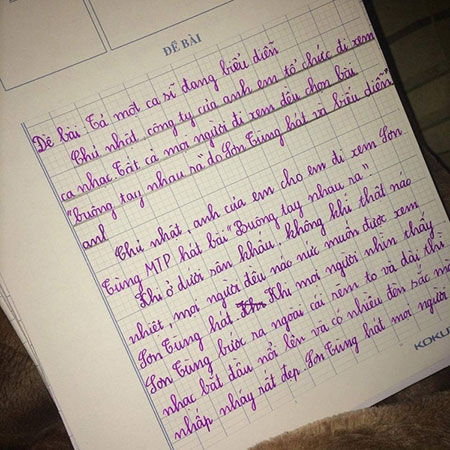 ĐỀ BÀI
Đề bài: Tả một ca sĩ đang biểu diễn
Chủ nhật, công ty của anh em tổ chức đi xem
ca nhạc. Tất cả mọi người đi xem đều chọn bài
"buông tay nhau ra" do Sơn Tùng hát và biểu diễn"
anh
Chủ nhật, anh của em cho em đi xem Sơn
Tùng MTP hát bài "Buông tay nhau ra".
Khi ở dưới sân khấu, không khí thật náo
nhiệt, mọi người đều náo nức muốn được xem
Sơn Tùng hát. Khi mọi người nhìn thấy
Sơn Tùng bước ra ngoài cái rem to và dài thì
nhạc bắt đầu nổi lên và có nhiều đèn sắc màu
nhấp nháy rất đẹp. Sơn Tùng hát mọi người
KOKU